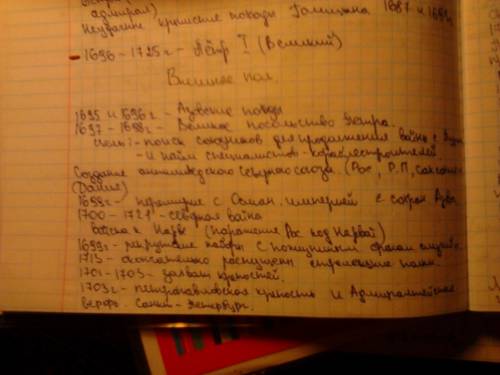 адмирал)
Неудачные крымские походы Голицына 1687 и 1689г.
1696 - 1725г - Пётр I (Великий)
Внешняя пол.
1695 и 1696г. - Азовские походы
1697 - 1698г - Великое посольство Петра.
цель: - поиск союзников для продолжения войны с
- и найм специалистов - кораблестроителей.
Создание антишведского Северного союза. (Рос, Р.П, саксония
(Дания)
1699г - перемирие с Осман. империей с сохран Азова
1700 - 1721г - северная война
Войска к Нарве (поражение Рос под Нарвой)
1699г - рекрутские наборы с
1713 - окончательно распущены стрелецкие полки.
1701 - 1703 - захват крепостей.
1703г. - петропавловская крепость и Адмиралтейская
верфь. Санкт - Петербург.